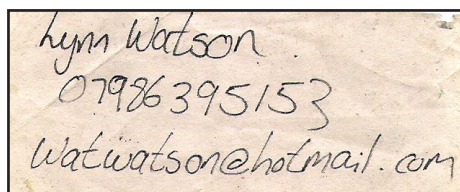 Lynn Watson
07986395153
watwatson@hotmail.com